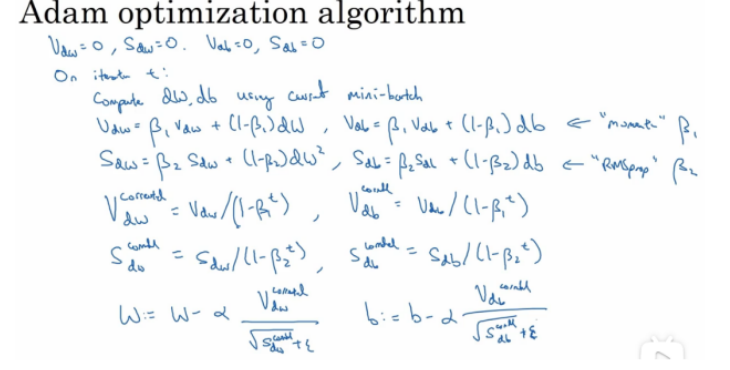 Adam optimization algorithm
V_dw = 0, S_dw = 0. V_db = 0, S_db = 0
On iteration t:
Compute dW, db using current mini-batch
V_dw = β₁ V_dw + (1-β₁) dW , V_db = β₁ V_db + (1-β₁) db ← "moment" β₁
S_dw = β₂ S_dw + (1-β₂) dW² , S_db = β₂ S_db + (1-β₂) db ← "RMSprop" β₂
V_dw^corrected = V_dw / (1-β₁^t) , V_db^corrected = V_db / (1-β₁^t)
S_dw^corrected = S_dw / (1-β₂^t) , S_db^corrected = S_db / (1-β₂^t)
W := W - α V_dw^corrected / (√S_dw^corrected + ε) b := b - α V_db^corrected / (√S_db^corrected + ε)